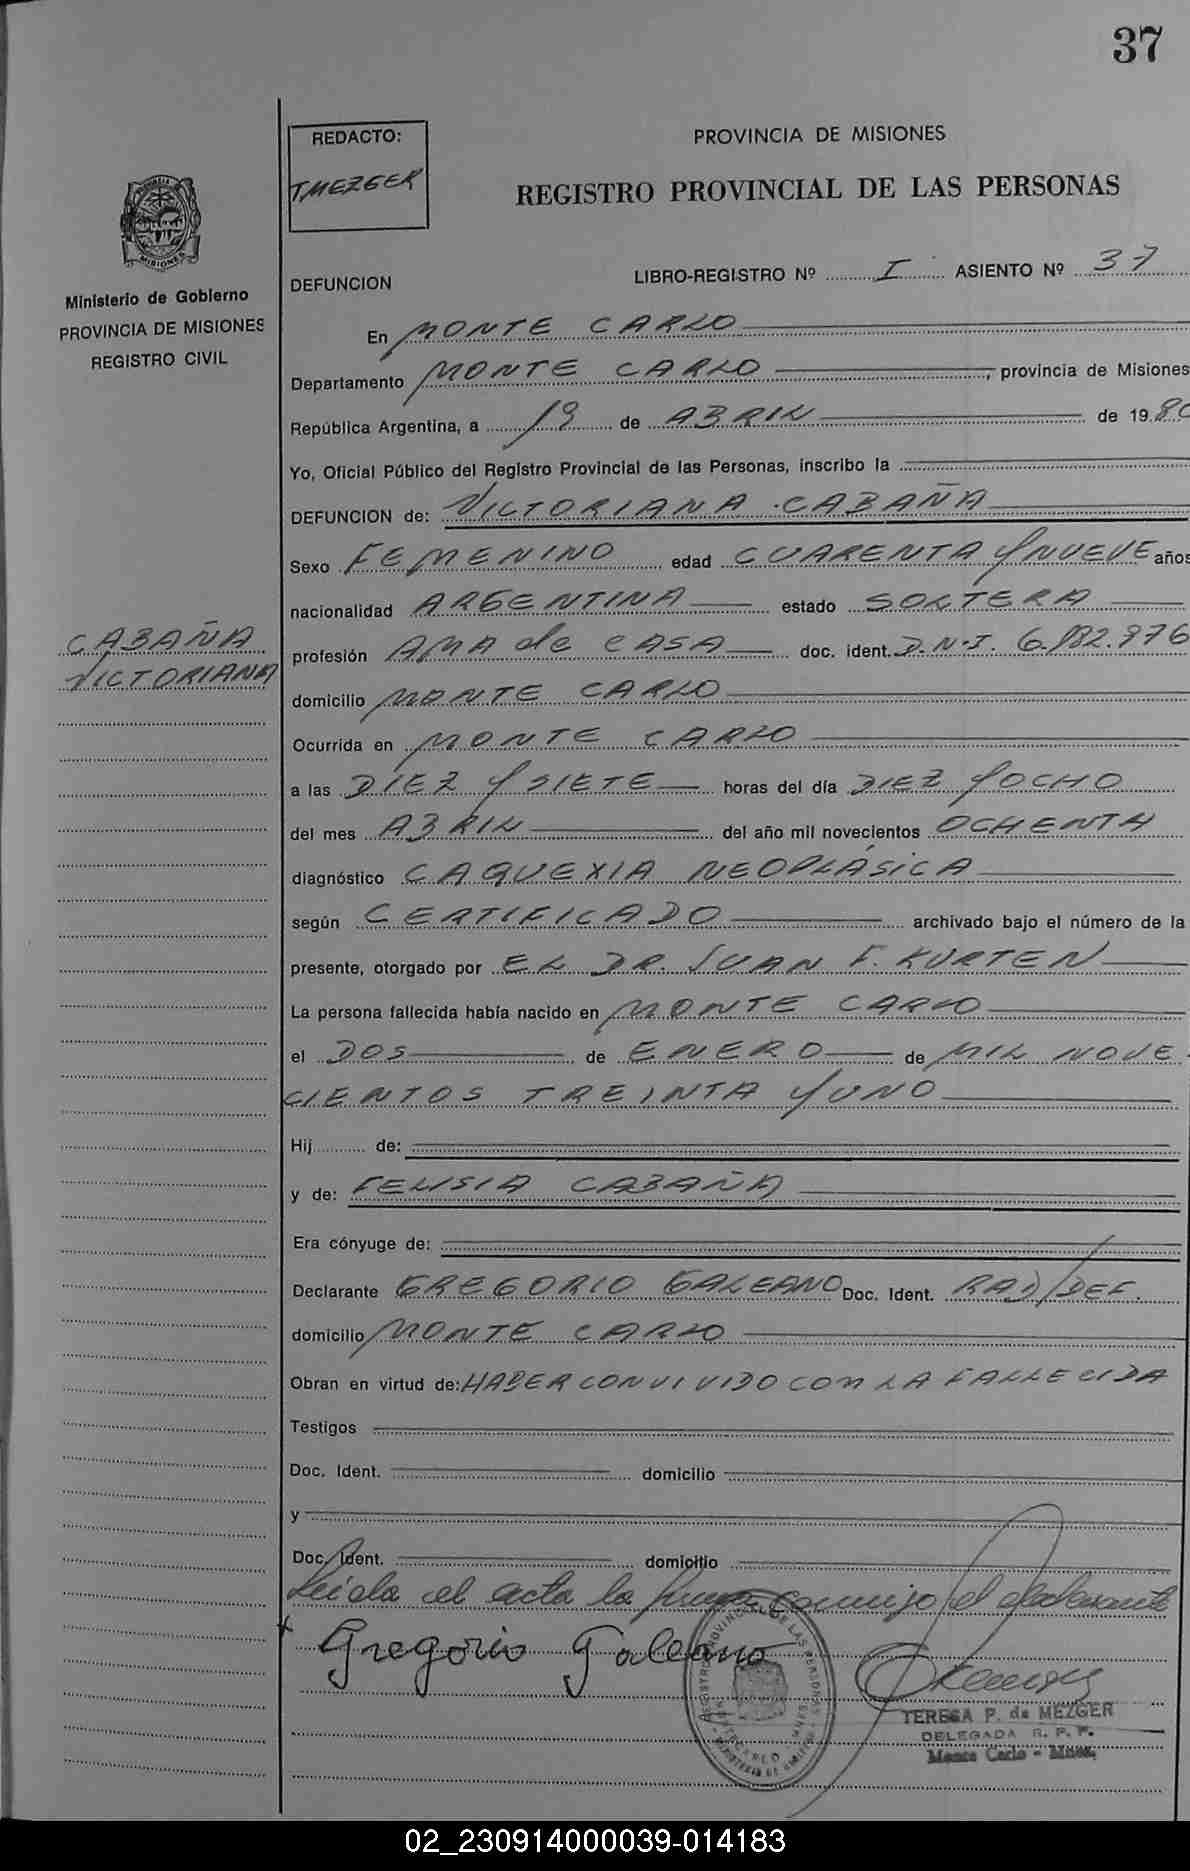 37
REDACTO:
T. MEZGER
PROVINCIA DE MISIONES
REGISTRO PROVINCIAL DE LAS PERSONAS
PROVINCIA DE
MISIONES
Ministerio de Gobierno
PROVINCIA DE MISIONES
REGISTRO CIVIL
DEFUNCION LIBRO-REGISTRO Nº I ASIENTO Nº 37
En MONTE CARLO
Departamento MONTE CARLO, provincia de Misiones
República Argentina, a 19 de ABRIL de 1980
Yo, Oficial Público del Registro Provincial de las Personas, inscribo la
DEFUNCION de: VICTORIANA CABAÑA
Sexo FEMENINO edad CUARENTA Y NUEVE años
nacionalidad ARGENTINA estado SOLTERA
CABAÑA
VICTORIANA
profesión AMA de CASA doc. ident. D.N.I. 6.182.976
domicilio MONTE CARLO
Ocurrida en MONTE CARLO
a las DIEZ Y SIETE horas del día DIEZ Y OCHO
del mes ABRIL del año mil novecientos OCHENTA
diagnóstico CAQUEXIA NEOPLÁSICA
según CERTIFICADO archivado bajo el número de la
presente, otorgado por EL DR. JUAN F. KURTEN
La persona fallecida había nacido en MONTE CARLO
el DOS de ENERO de MIL NOVE
CIENTOS TREINTA Y UNO
Hij de:
y de: FELISIA CABAÑA
Era cónyuge de:
Declarante GREGORIO GALEANO Doc. Ident. RAD/DEF.
domicilio MONTE CARLO
Obran en virtud de: HABER CONVIVIDO CON LA FALLECIDA
Testigos
Doc. Ident. domicilio
y
Doc. Ident. domicilio
Leida el acta la firma conmigo el declarante
Gregorio Galeano
TERESA P. de MEZGER
DELEGADA R. P. P.
Monte Carlo - Mnes.
02_230914000039-014183